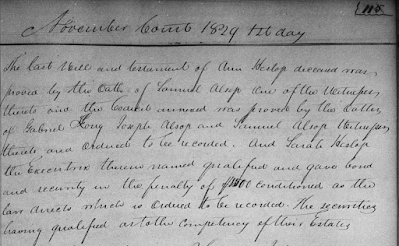 115
November Court 1829 1st day
The last Will and testament of Ann Heslop deceased was
proved by the Oath of Samuel Alsop one of the Witnesses
thereto and the Codicil annexed was proved by the Oaths
of Gabriel Long Joseph Alsop and Samuel Alsop Witnesses
thereto and Ordered to be recorded. And Sarah Heslop
the Executrix therein named qualified and gave bond
and security in the penalty of $1500 conditioned as the
law directs which is ordered to be recorded. The securities
having qualified as to the competency of their Estates